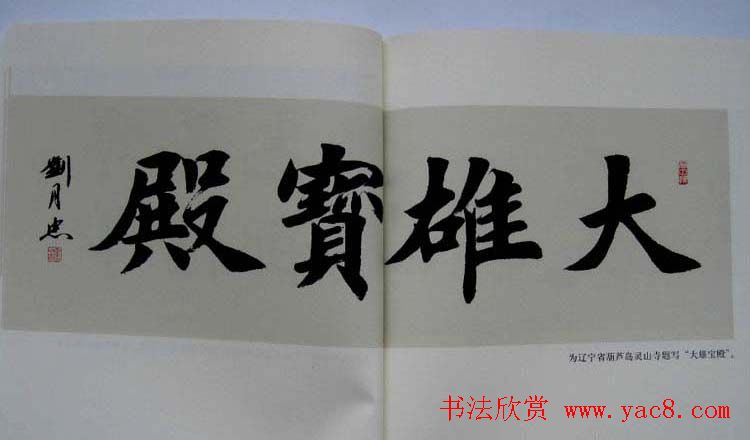 大雄寶殿
劉月忠
为辽宁省葫芦岛灵山寺题写“大雄宝殿”。
书法欣赏 www.yac8.com